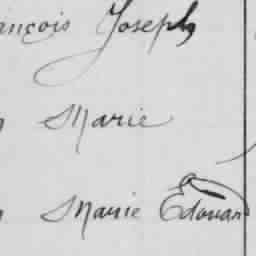 ançois Joseph
Marie
Marie Edouard